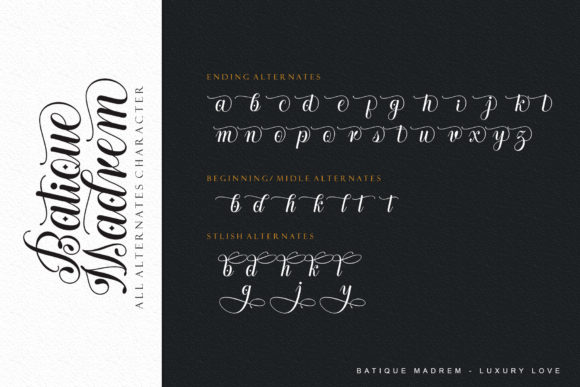 Batique
Madrem
ALL ALTERNATES CHARACTER
ENDING ALTERNATES
a b c d e f g h i j k l
m n o p q r s t u v x y z
BEGINNING/ MIDLE ALTERNATES
b d h k l t t
STLISH ALTERNATES
b d h k l
g j y
BATIQUE MADREM - LUXURY LOVE